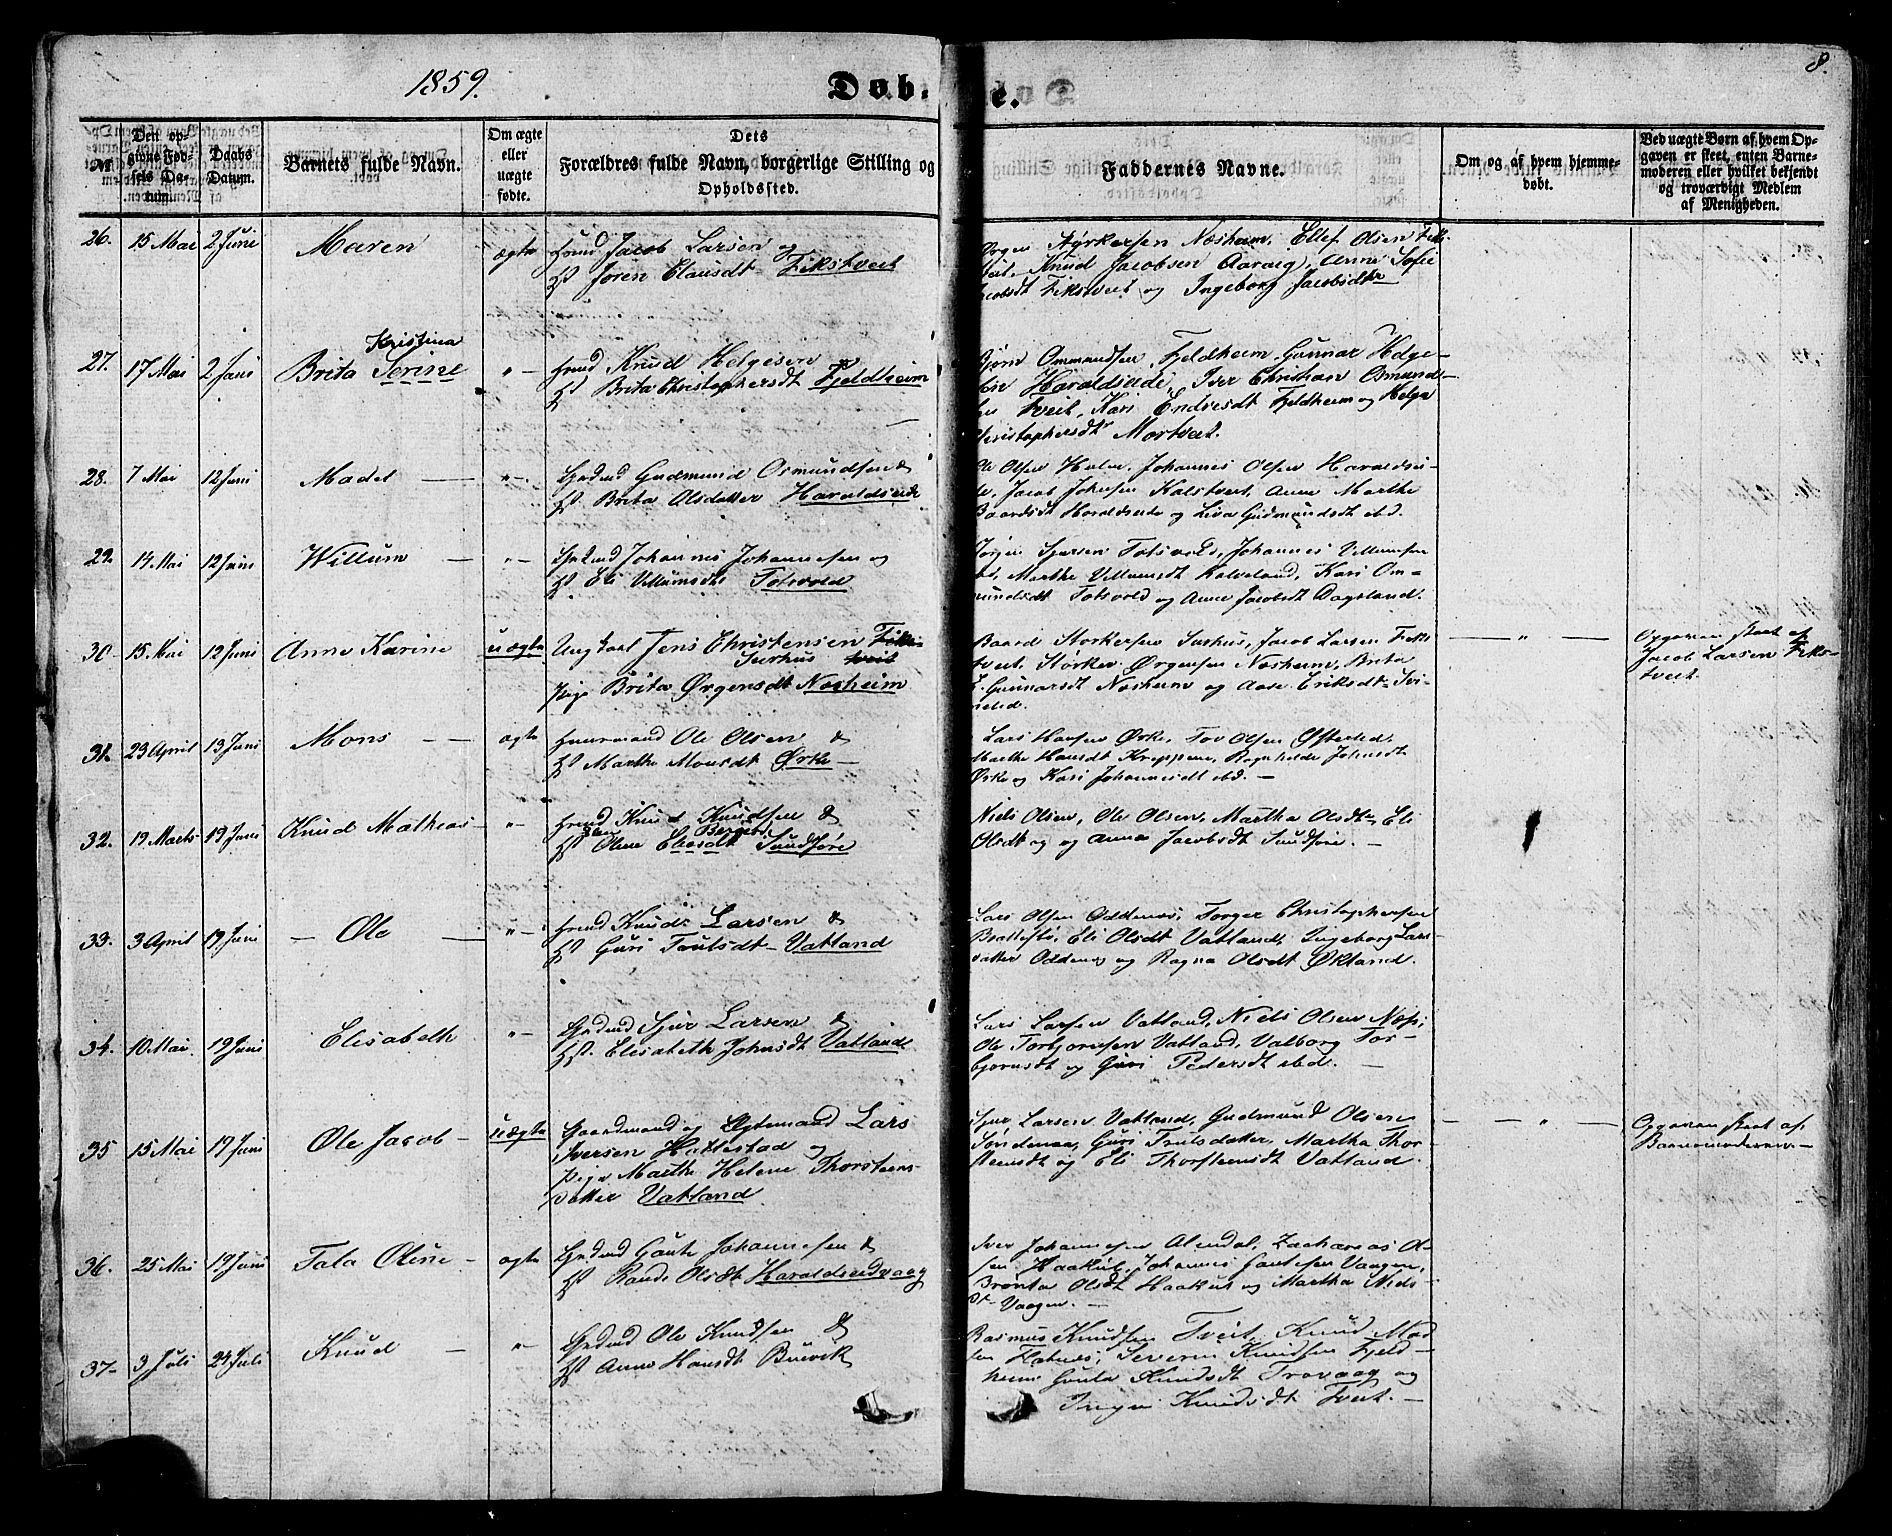 1859.
Døbte.
8.
No
Den opgivne Fødsels Datum.
Daabs Datum.
Barnets fulde Navn.
Om ægte eller uægte fødte.
Dets Forældres fulde Navn, borgerlige Stilling og Opholdssted.
Faddernes Navne.
Om og af hvem hjemmedøbt.
Ved uægte Børn af hvem Opgaven er skeet, enten Barnemoderen eller hvilket bekjendt og troværdigt Medlem af Menigheden.
26. 15 Mai 2 Juni Maren ægte Hmd Jacob Larsen og
Hst Joren Clausdt Fikstveit
Ørgen Styrkersen Næsheim, Ellef Olsen Fiks-
tveit, Knud Jacobsen Aarvig, Anne Sofie
Jacobsdt Fikstveit og Ingeborg Jacobsdtr
27. 17 Mai 2 Juni Brita Kristina Serine "- Hmd Knud Helgesen
Hst Brita Christophersdt Fjeldheim
Bjørn Ommundsen Fjeldheim, Gunnar Helge-
sen Haraldseide, Iver Christian Osmund-
sen Tveit, Kari Endresdt Fjeldheim og Helga
Christophersdtr Mortveit.
28. 7 Mai 12 Juni Madel — "- Grdmd Gudmund Osmundsen &
Hst Brita Olsdatter Haraldseide
Ole Olsen Hulen, Johannes Olsen Haraldsei-
de, Jacob Johnsen Kalstveit, Anne Marthe
Baardsdt Haraldseide og Liva Gudmundsdt ibd.
29. 14 Mai 12 Juni Willum — "- Grdmd Johannes Johannesen og
Hst Eli Villumsdt Totsvold
Jørgen Sjursen Totsvold, Johannes Villumsen
ibd, Marthe Villumsdt Kalveland, Kari Om-
mundsdt Totsvold og Anne Jacobsdt Dagsland.
30. 15 Mai 12 Juni Anne Karine uægte Ungkarl Jens Christensen Fiks-
Surhus tveit
Pige Brita Ørgensdt Næsheim
Baard Storkersen Surhus, Jacob Larsen Fiks-
tveit, Størker Ørgensen Næsheim, Brita
Gunnarsdt Næsheim og Aase Eriksdt
— " —
Opgaven skeet af
Jacob Larsen Fiks-
tveit.
31. 23 April 13 Juni Mons — ægte Huusmand Ole Olsen &
Hst Marthe Monsdt Ørke —
Lars Hansen Ørke, Tor Olsen Østerlid,
Marthe Hansdt Kroppene, Ragnhilde Johnsdt
Ørke og Kari Johannesdt ibd. —
32. 19 Marts 19 Juni Knud Mathias "- Hmd Knud Knudsen &
Hst Olene Eliasdt Sundføre
Niels Olsen, Ole Olsen, Martha Olsdt, Eli
Olsdt og og Anna Jacobsdt Sundføre. —
33. 3 April 19 Juni — Ole — "- Hmd Knud Larsen &
Hst Guri Toutsdt Vatland
Lars Olsen Oddenæs, Torger Christophersen
Brattestø, Eli Olsdt Vatland, Ingeborg Lars-
datter Oddenæs og Ragna Olsdt Økland.
34. 10 Mai 19 Juni Elisabeth "- Grdmd Sjur Larsen &
Hst. Elisabeth Johnsdt Vatland
Lars Larsen Vatland, Niels Olsen Næs,
Ole Torbjørnsen Vatland, Valborg Tor-
bjørnsdt og Guri Pedersdt ibd. —
35 15 Mai 19 Juni Ole Jacob — uægte Gaardmand og Ægtemand Lars
Iversen Hattestad og
Pige Marthe Helene Thorsteins-
datter Vatland
Sjur Larsen Vatland, Gudmund Olsen
Søndenaa, Guri Toutsdatter, Martha Thor-
steinsdt og Eli Thorsteinsdt Vatland.
— " —
Opgaven skeet af
Barnemoderen. —
36. 25 Mai 19 Juni Tala Oline — ægte Grdmd Gaute Johannesen &
Hst Rande Olsdt Haraldseidvaag
Iver Johannesen Alendal, Zacharias Ol-
sen Haakull, Johannes Gautesen Vaagen,
Brønta Olsdt Haakull og Martha Niels-
dt Vaagen. —
37 3 Juli 24 Juli Knud — "- Grdmd Ole Knudsen &
Hst Anne Hansdt Buevik
Rasmus Knudsen Tveit, Knud Mad-
sen Flatnæs, Severin Knudsen Fjeld-
heim Gunla Knudsdt Trovaag og
Inger Knudsdt Tveit. —